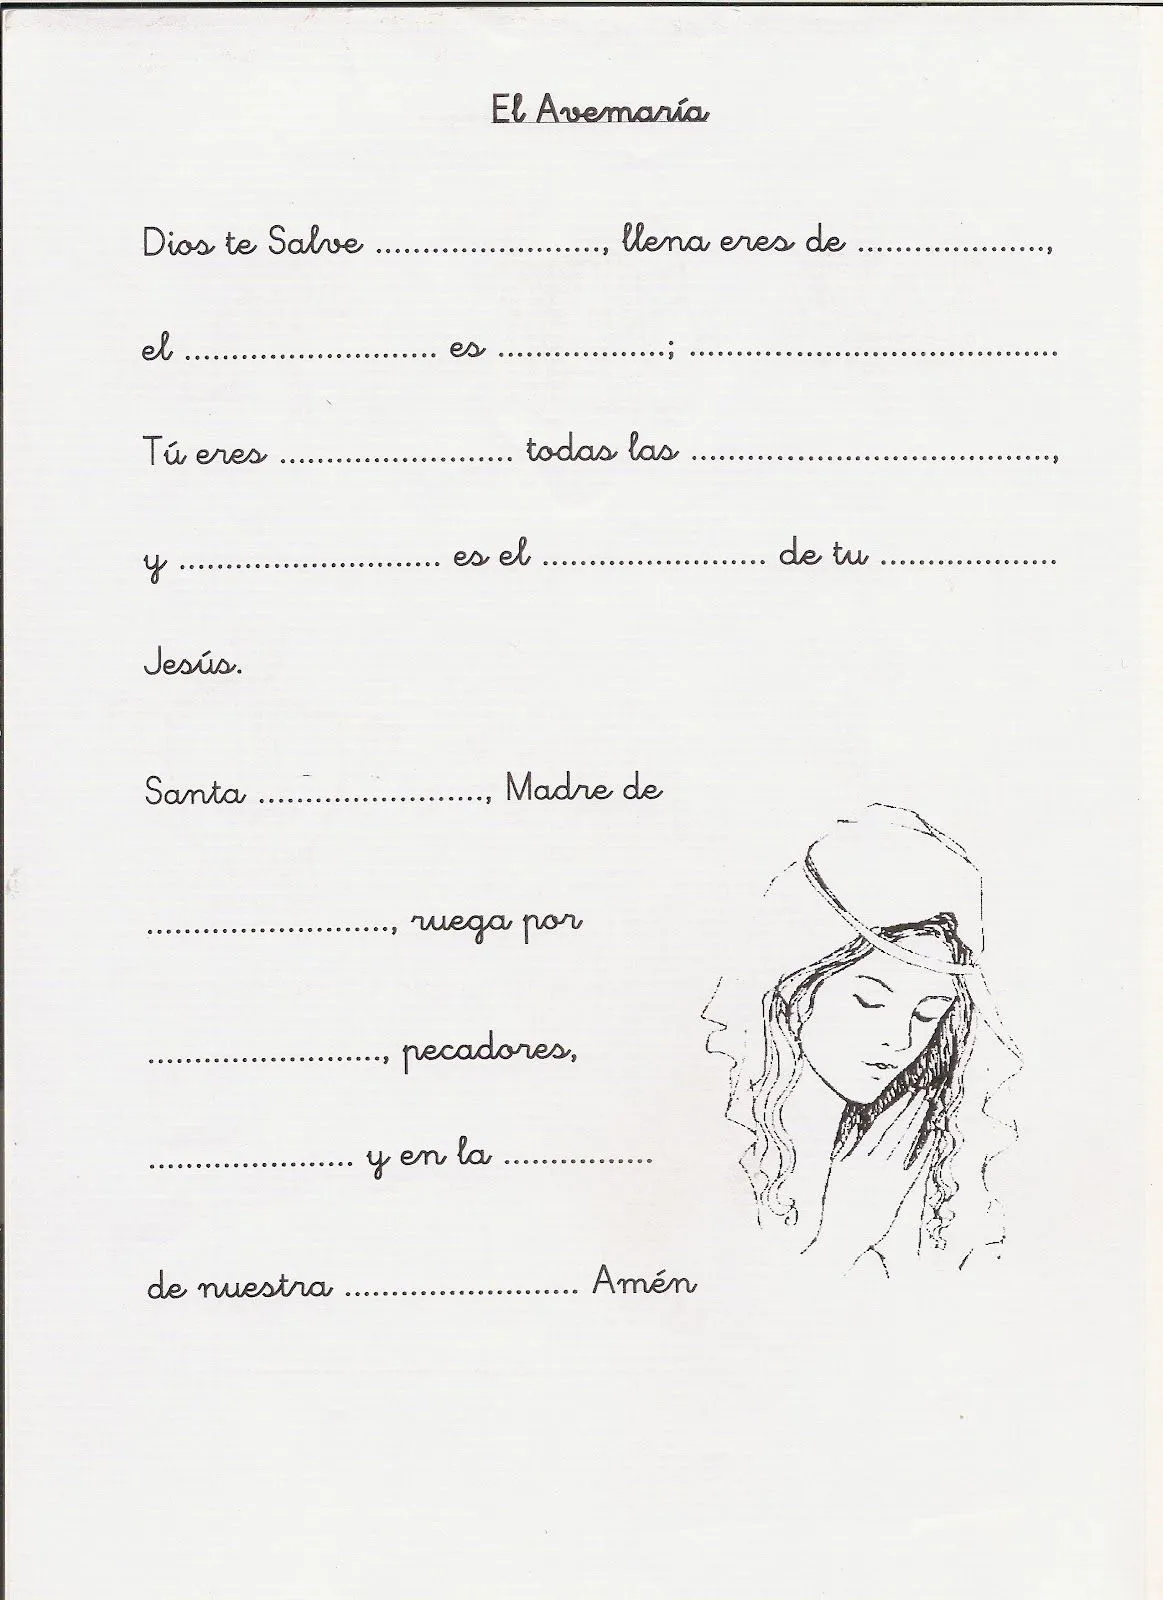 El Avemaría
Dios te Salve ........................, llena eres de ....................,
el ........................... es ..................; .......................................
Tú eres ......................... todas las ......................................,
y ............................ es el ........................ de tu ...................
Jesús.
Santa ........................, Madre de
.........................., ruega por
........................., pecadores,
...................... y en la ................
de nuestra ......................... Amén